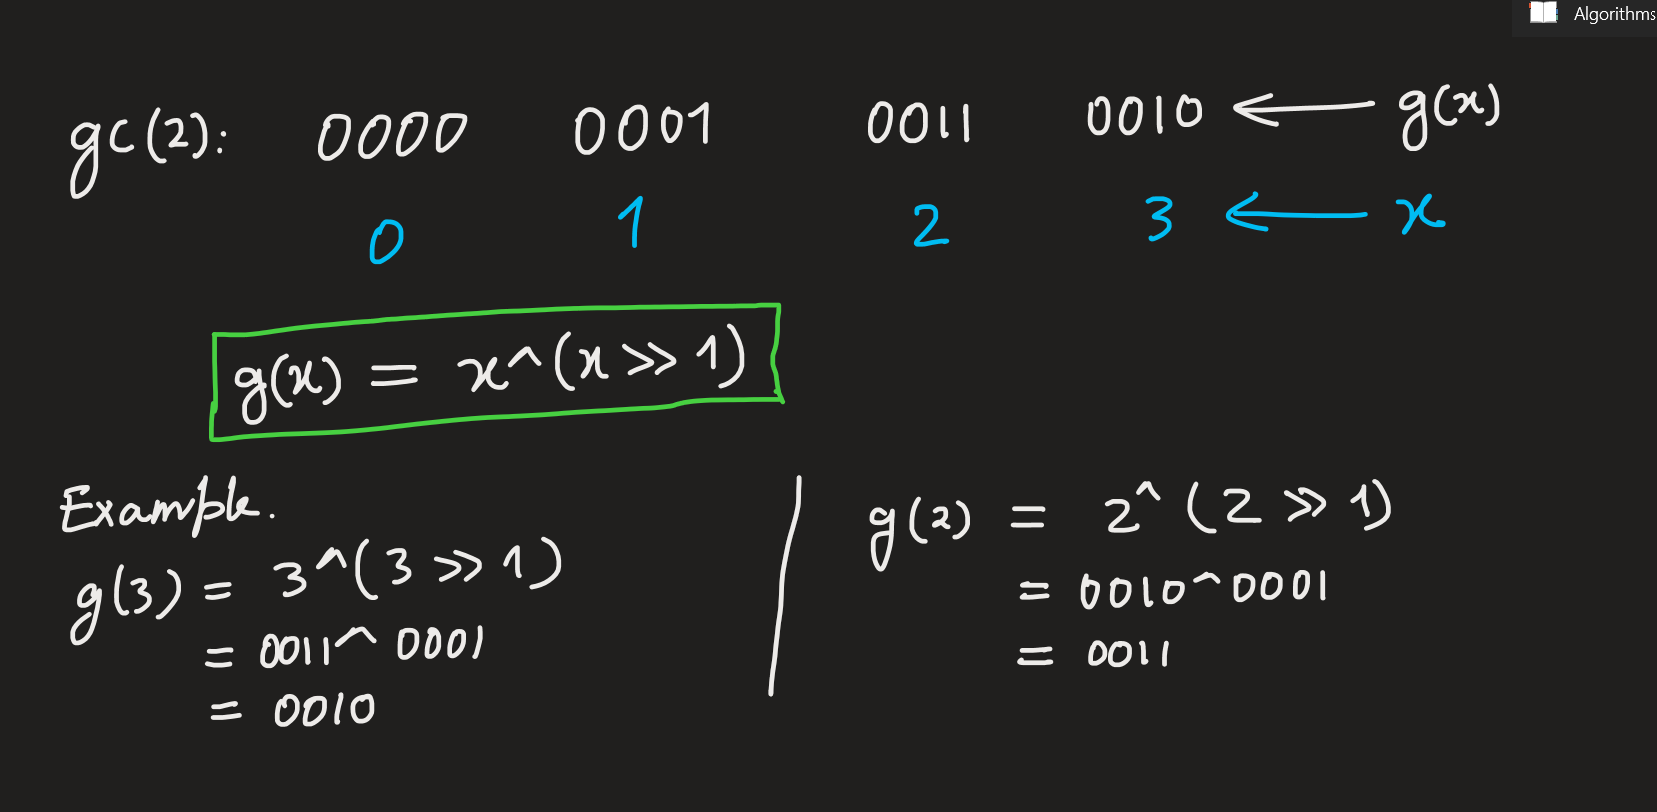 Algorithms
gc(2): 0000 0001 0011 0010 ← g(x)
0 1 2 3 ← x
g(x) = x^(x >> 1)
Example.
g(3) = 3^(3 >> 1)
= 0011^0001
= 0010
g(2) = 2^(2 >> 1)
= 0010^0001
= 0011